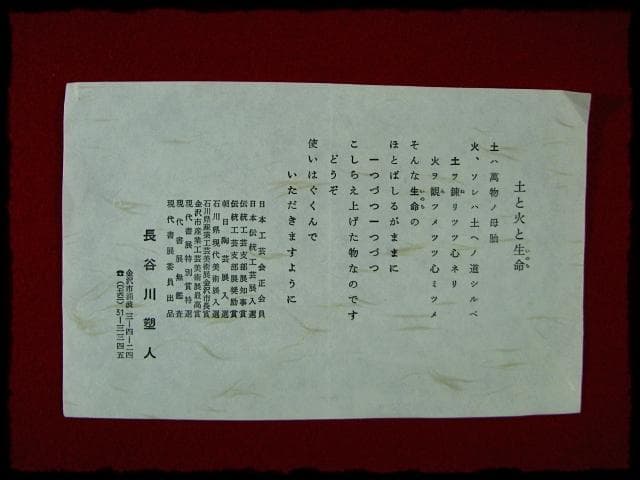 土と火と生命
いのち
土ハ萬物ノ母胎
火、ソレハ土ヘノ道シルベ
土ヲ錬リツツ心ネリ
ね
火ヲ観ツメツツ心ミツメ
み
そんな生命の
いのち
ほとばしるがままに
一つづつ一つづつ
こしらえ上げた物なのです
どうぞ
使いはぐくんで
いただきますように
日本工芸会正会員
日本伝統工芸展入選
伝統工芸支部展知事賞
伝統工芸支部展奨励賞
朝日陶芸展入選
石川県現代美術展入選
石川県産業工芸美術展金沢市長賞
金沢市産業工芸美術展最高賞
現代書展特別賞特選
現代書展無鑑査
現代書展委員出品
長谷川塑人
金沢市 三-四-二四
☎(〇七六二)31-三三四五